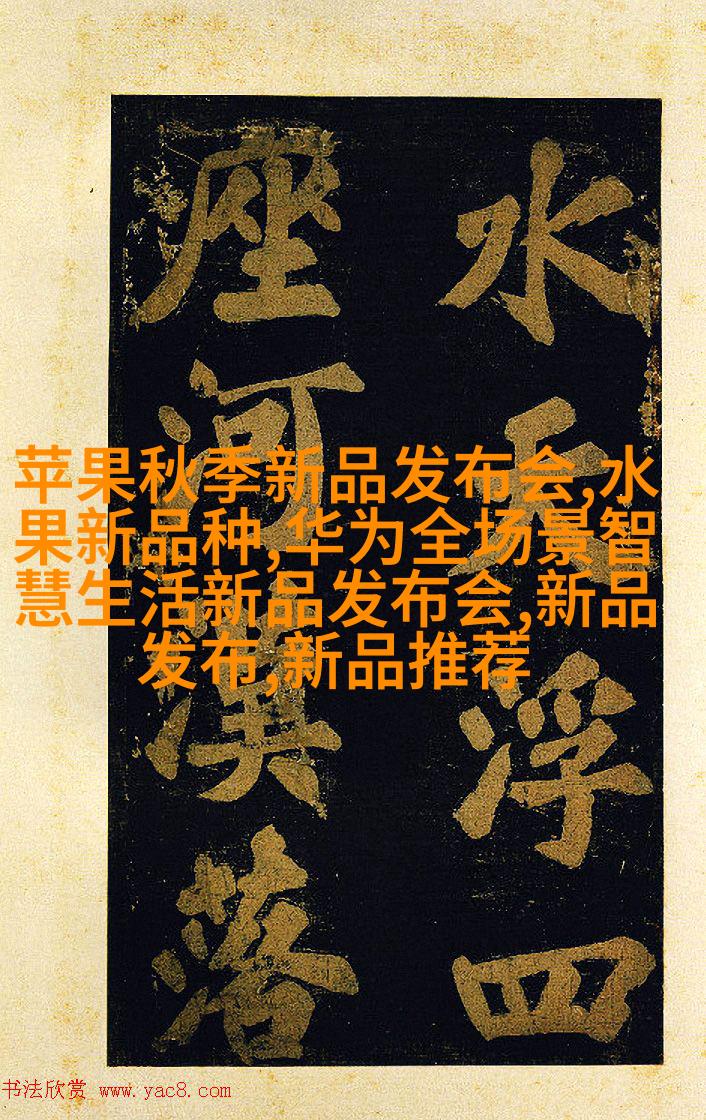 水天浮四
座河漢落
苹果秋季新品发布会,水
果新品种,华为全场景智
慧生活新品发布会,新品
发布,新品推荐
书法欣赏 www.yac8.com